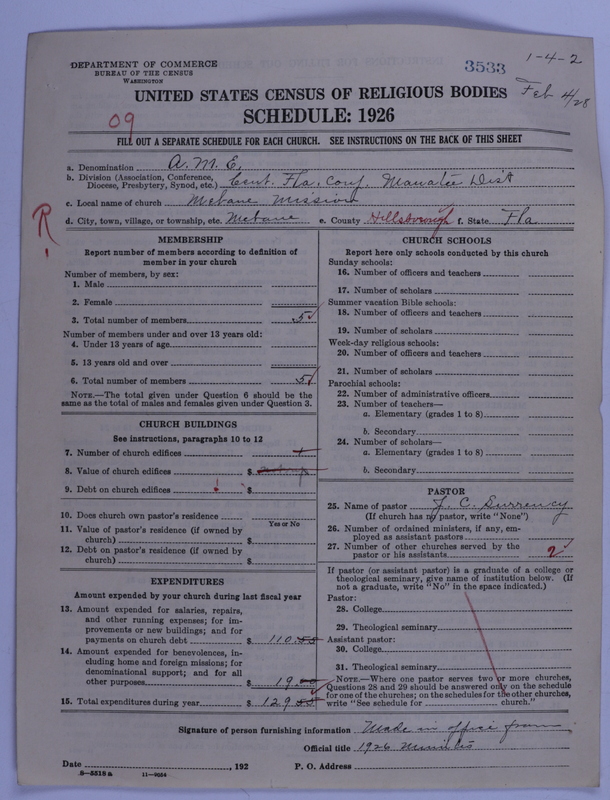 DEPARTMENT OF COMMERCE
BUREAU OF THE CENSUS
WASHINGTON
3533
1-4-2
Feb 4/28
UNITED STATES CENSUS OF RELIGIOUS BODIES
SCHEDULE: 1926
09
FILL OUT A SEPARATE SCHEDULE FOR EACH CHURCH. SEE INSTRUCTIONS ON THE BACK OF THIS SHEET
a. Denomination A. M. E.
b. Division (Association, Conference, Diocese, Presbytery, Synod, etc.) Cent. Fla. Conf. Manatee Dist
c. Local name of church Mebane Mission
d. City, town, village, or township, etc. Mebane e. County Hillsborough f. State Fla
R
MEMBERSHIP
Report number of members according to definition of member in your church
Number of members, by sex:
1. Male
2. Female
3. Total number of members 5
Number of members under and over 13 years old:
4. Under 13 years of age
5. 13 years old and over
6. Total number of members 5
NOTE.—The total given under Question 6 should be the same as the total of males and females given under Question 3.
CHURCH BUILDINGS
See instructions, paragraphs 10 to 12
7. Number of church edifices
8. Value of church edifices $
9. Debt on church edifices $
10. Does church own pastor's residence
Yes or No
11. Value of pastor's residence (if owned by church) $
12. Debt on pastor's residence (if owned by church) $
EXPENDITURES
Amount expended by your church during last fiscal year
13. Amount expended for salaries, repairs, and other running expenses; for improvements or new buildings; and for payments on church debt $ 110
14. Amount expended for benevolences, including home and foreign missions; for denominational support; and for all other purposes $ 19
15. Total expenditures during year $ 129
CHURCH SCHOOLS
Report here only schools conducted by this church
Sunday schools:
16. Number of officers and teachers
17. Number of scholars
Summer vacation Bible schools:
18. Number of officers and teachers
19. Number of scholars
Week-day religious schools:
20. Number of officers and teachers
21. Number of scholars
Parochial schools:
22. Number of administrative officers
23. Number of teachers—
a. Elementary (grades 1 to 8)
b. Secondary
24. Number of scholars—
a. Elementary (grades 1 to 8)
b. Secondary
PASTOR
25. Name of pastor J. C. Surrency
(If church has no pastor, write "None")
26. Number of ordained ministers, if any, employed as assistant pastors
27. Number of other churches served by the pastor or his assistants 2
If pastor (or assistant pastor) is a graduate of a college or theological seminary, give name of institution below. (If not a graduate, write "No" in the space indicated.)
Pastor:
28. College
29. Theological seminary
Assistant pastor:
30. College
31. Theological seminary
NOTE.—Where one pastor serves two or more churches, Questions 28 and 29 should be answered only on the schedule for one of the churches; on the schedules for the other churches, write "See schedule for church."
Signature of person furnishing information Made in office from
Official title 1926 Minutes
Date , 192 P. O. Address
8-5518a 11-9034